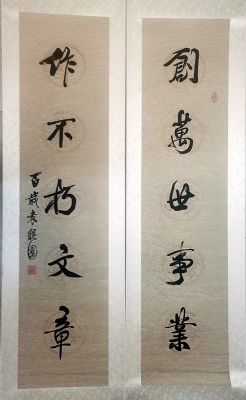 創萬世事業
作不朽文章
百歲袁曉園